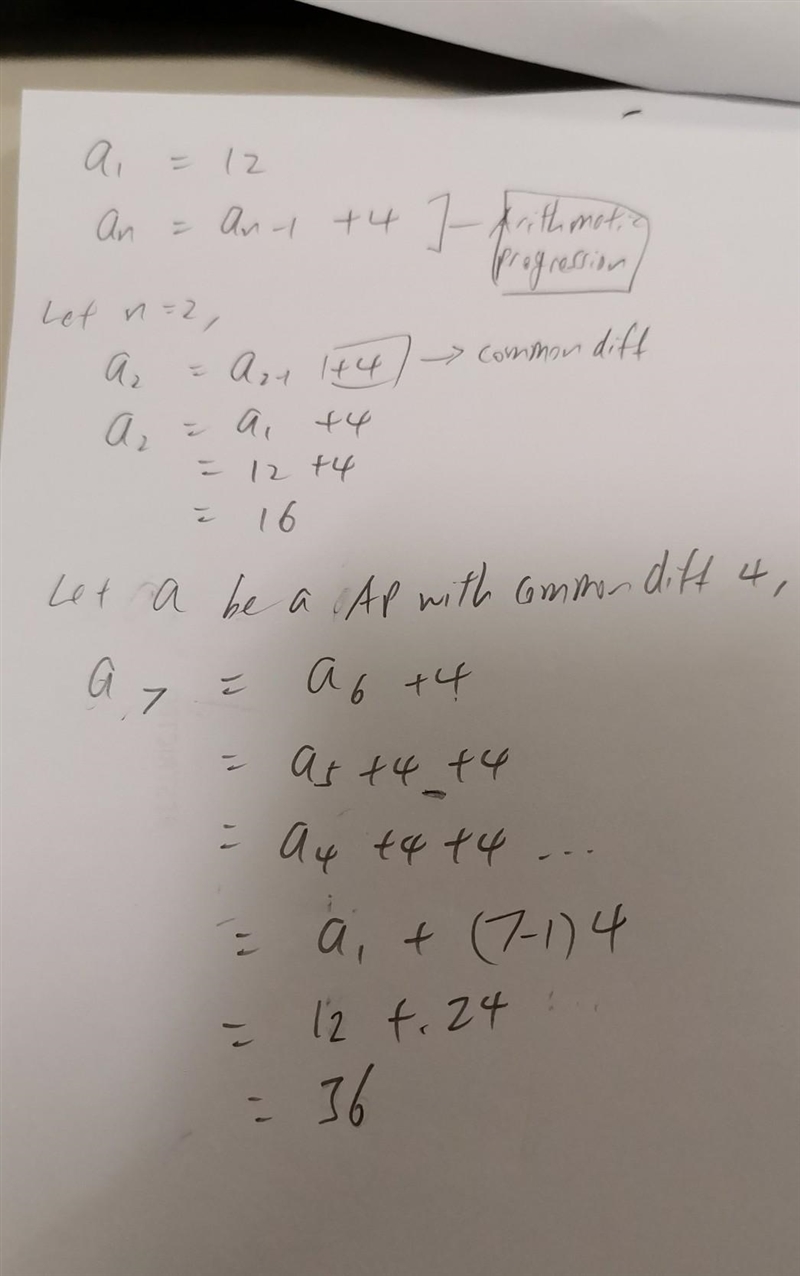 a₁ = 12
aₙ = aₙ₋₁ +4 ] – Arithmetic
progression
Let n=2,
a₂ = a₂₋₁ +4 → common diff
a₂ = a₁ +4
= 12 +4
= 16
Let a be a AP with common diff 4,
a₇ = a₆ +4
= a₅ +4 +4
= a₄ +4 +4 ...
= a₁ + (7-1)4
= 12 + 24
= 36